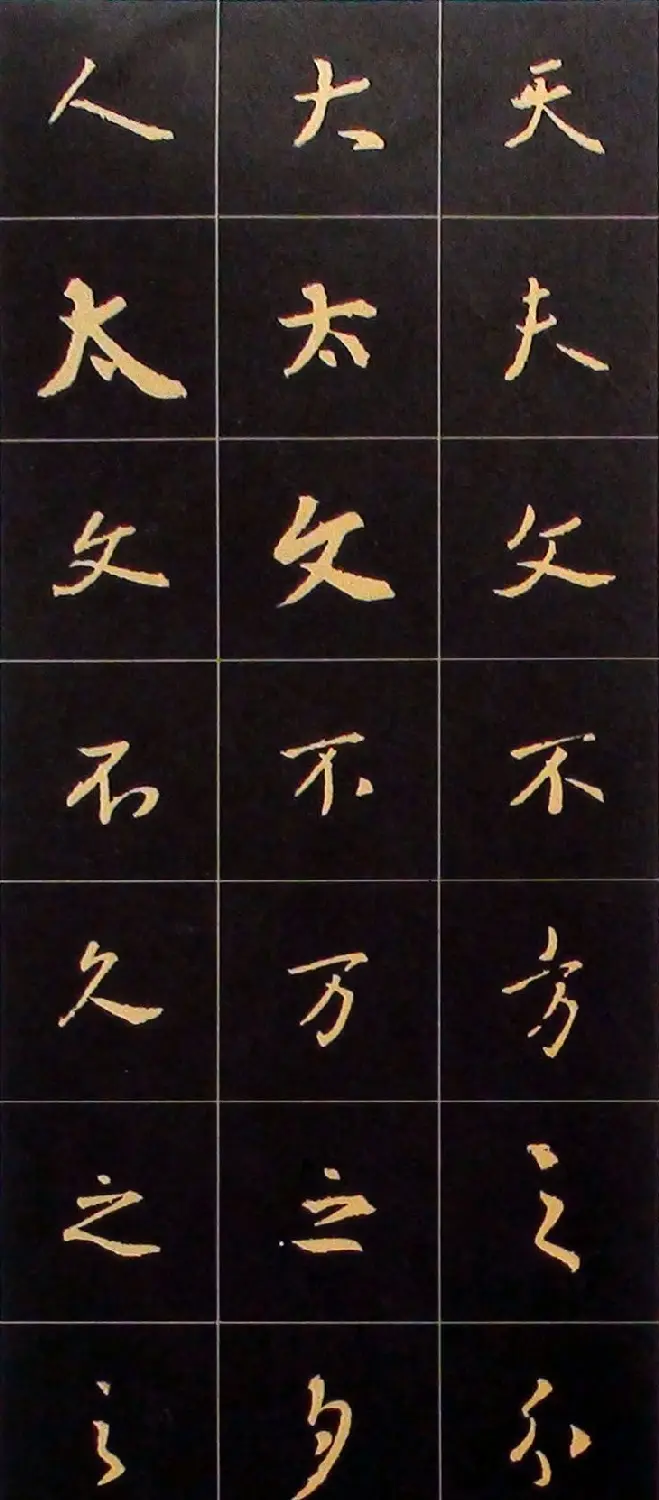 人 大 天
太 太 夫
文 文 父
不 不 不
久 万 方
之 之 之
之